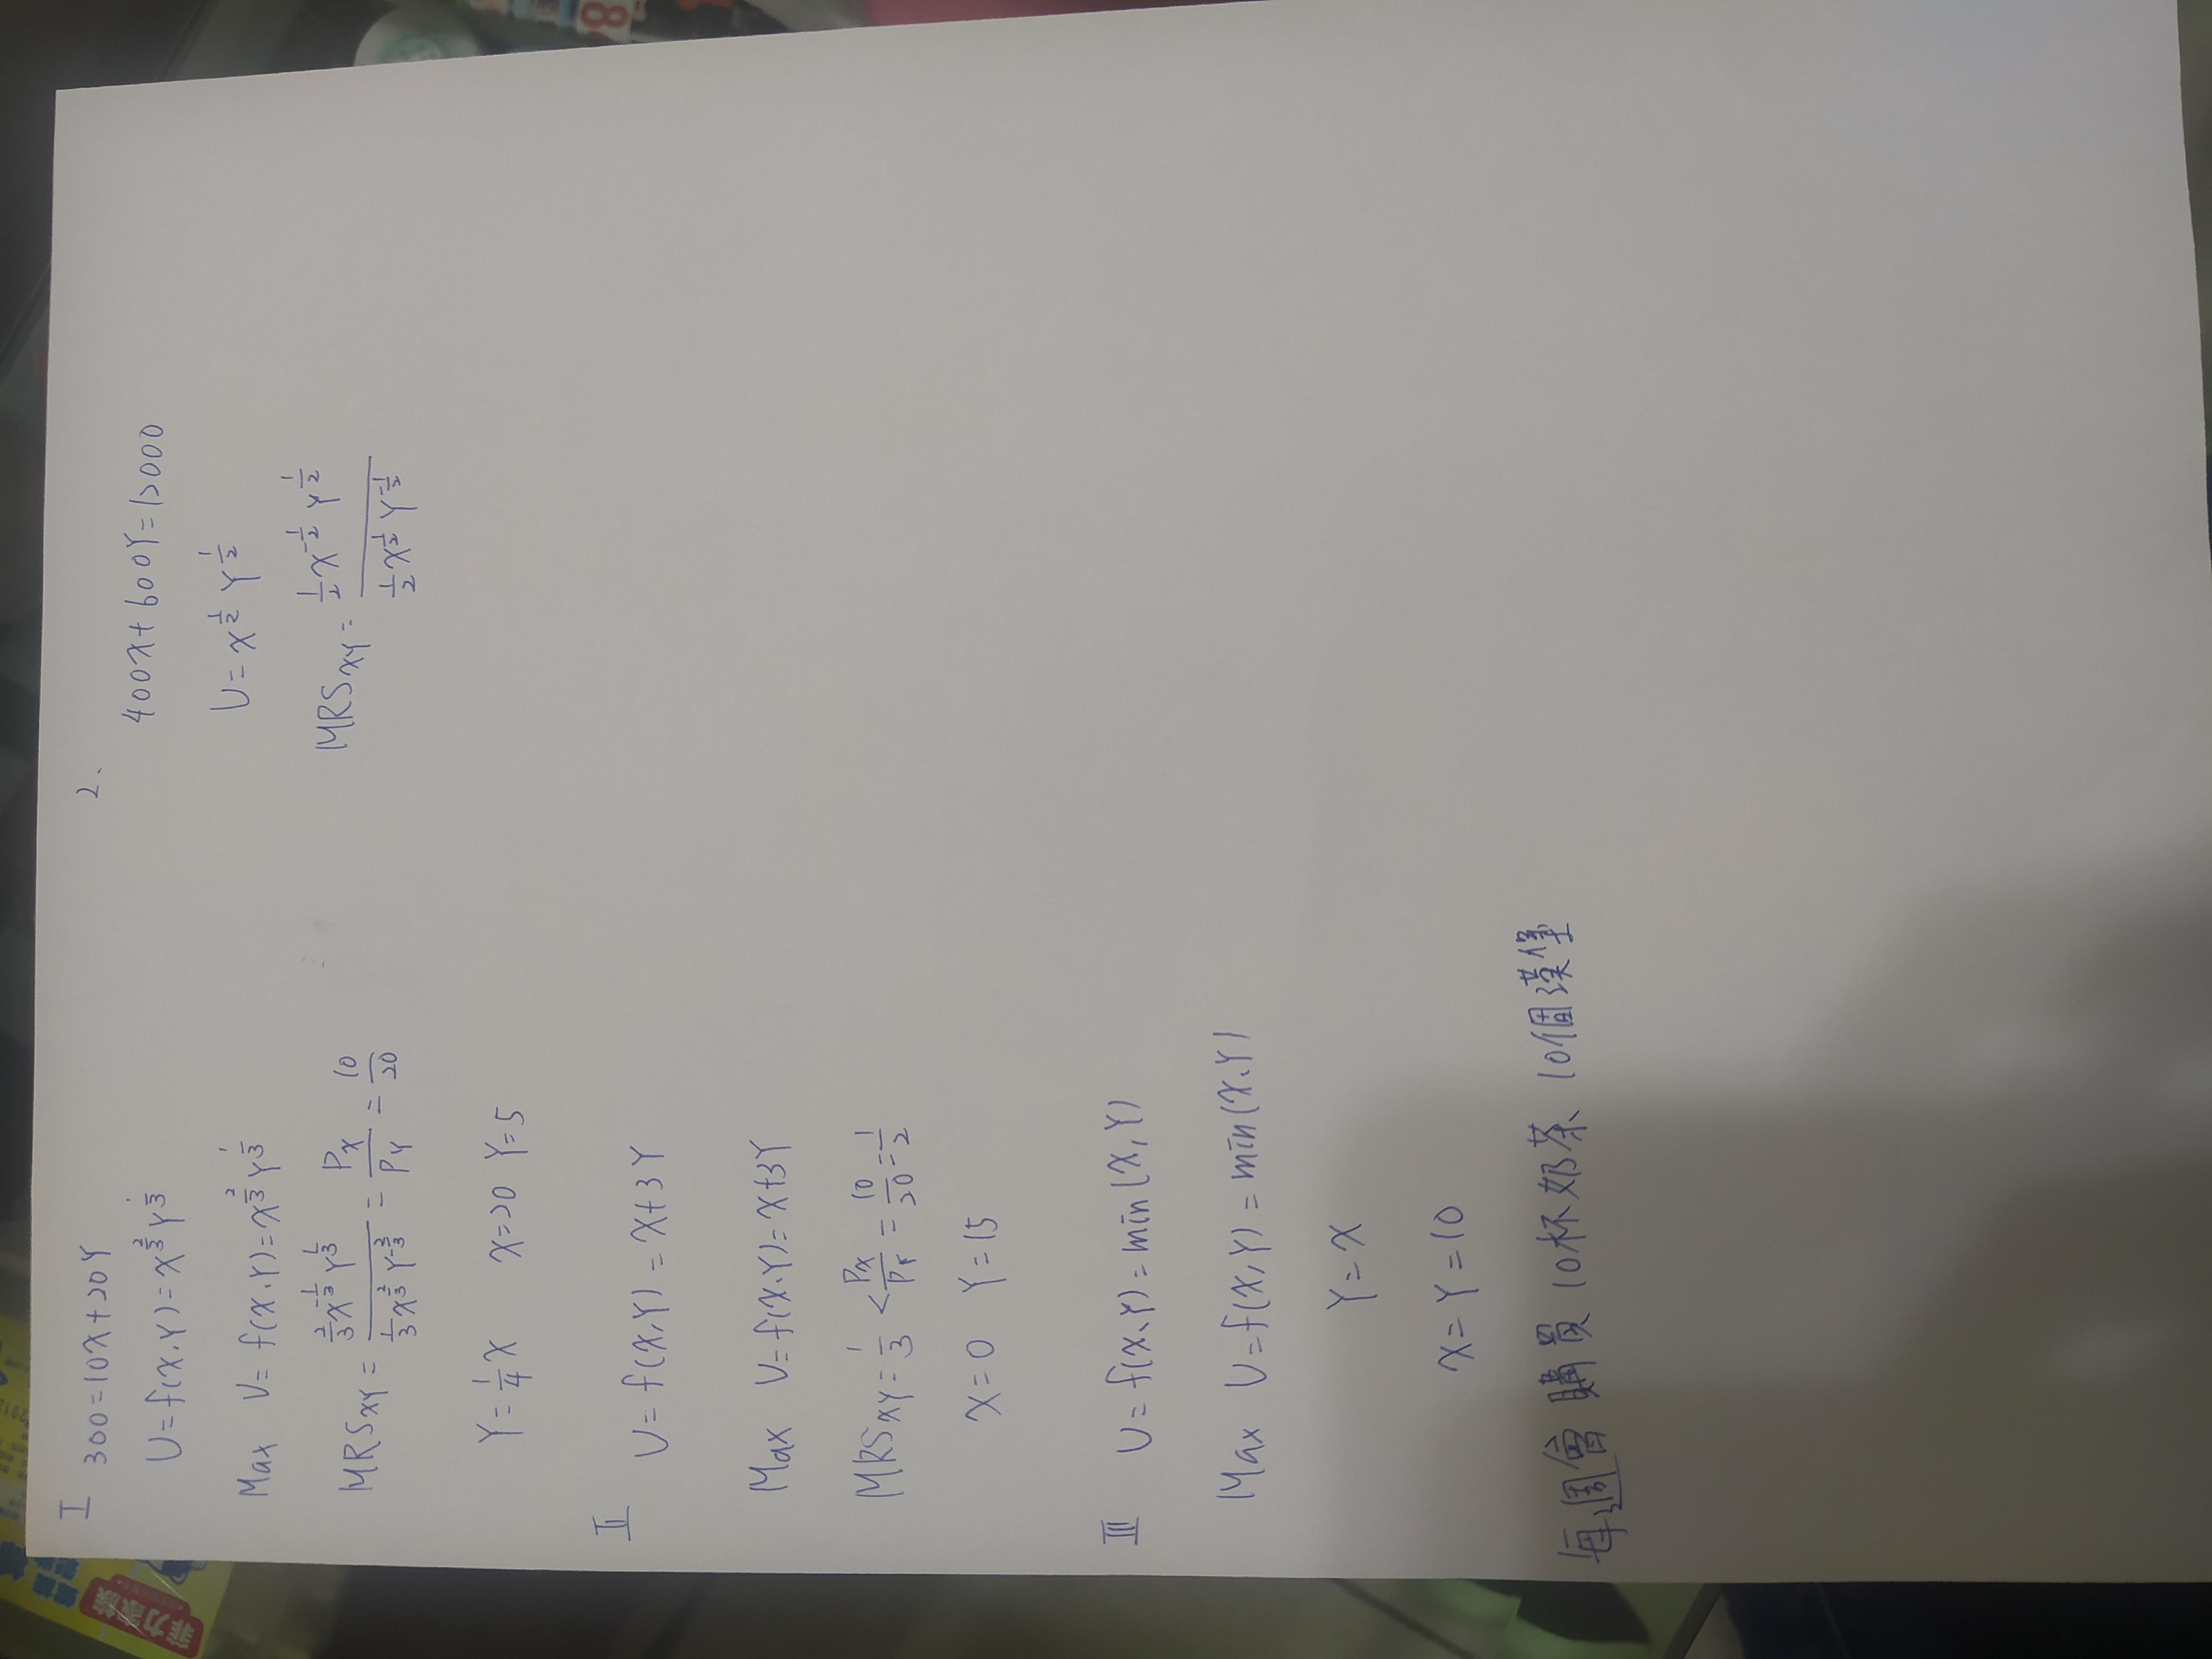 I
300=10X+20Y
U=f(X,Y)=X^{2/3}Y^{1/3}
Max U=f(X,Y)=X^{2/3}Y^{1/3}
MRS_{XY}=\frac{\frac{2}{3}X^{-\frac{1}{3}}Y^{\frac{1}{3}}}{\frac{1}{3}X^{\frac{2}{3}}Y^{-\frac{2}{3}}}=\frac{P_X}{P_Y}=\frac{10}{20}
Y=\frac{1}{4}X X=20 Y=5
II
U=f(X,Y)=X+3Y
Max U=f(X,Y)=X+3Y
MRS_{XY}=\frac{1}{3}<\frac{P_X}{P_Y}=\frac{10}{20}=\frac{1}{2}
X=0 Y=15
III
U=f(X,Y)=min(X,Y)
Max U=f(X,Y)=min(X,Y)
Y=X
X=Y=10
每週會購買10杯奶茶 10個漢堡
2.
400X+600Y=12000
U=X^{\frac{1}{2}}Y^{\frac{1}{2}}
MRS_{XY}=\frac{\frac{1}{2}X^{-\frac{1}{2}}Y^{\frac{1}{2}}}{\frac{1}{2}X^{\frac{1}{2}}Y^{-\frac{1}{2}}}
菲力家族